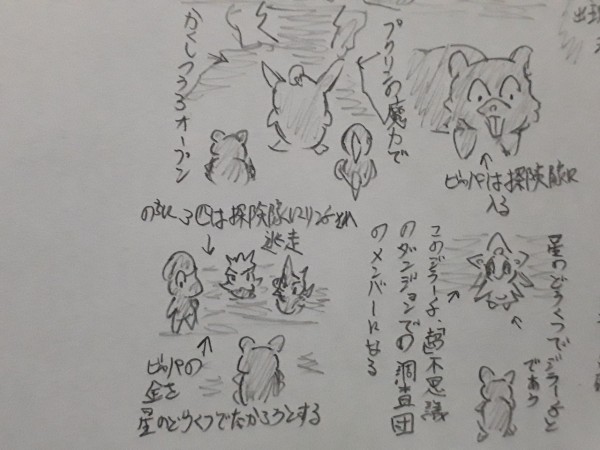 ビッパは探険隊に
入る
プクリンの魔力で
かくしつうろオープン
星のどうくつでジラーチと
であう
このジラーチ、超不思議
のダンジョンでの調査団
のメンバーになる
のちに3匹は探険隊にリンチされ
逃走
ビッパの
金を
星のどうくつでたかろうとする